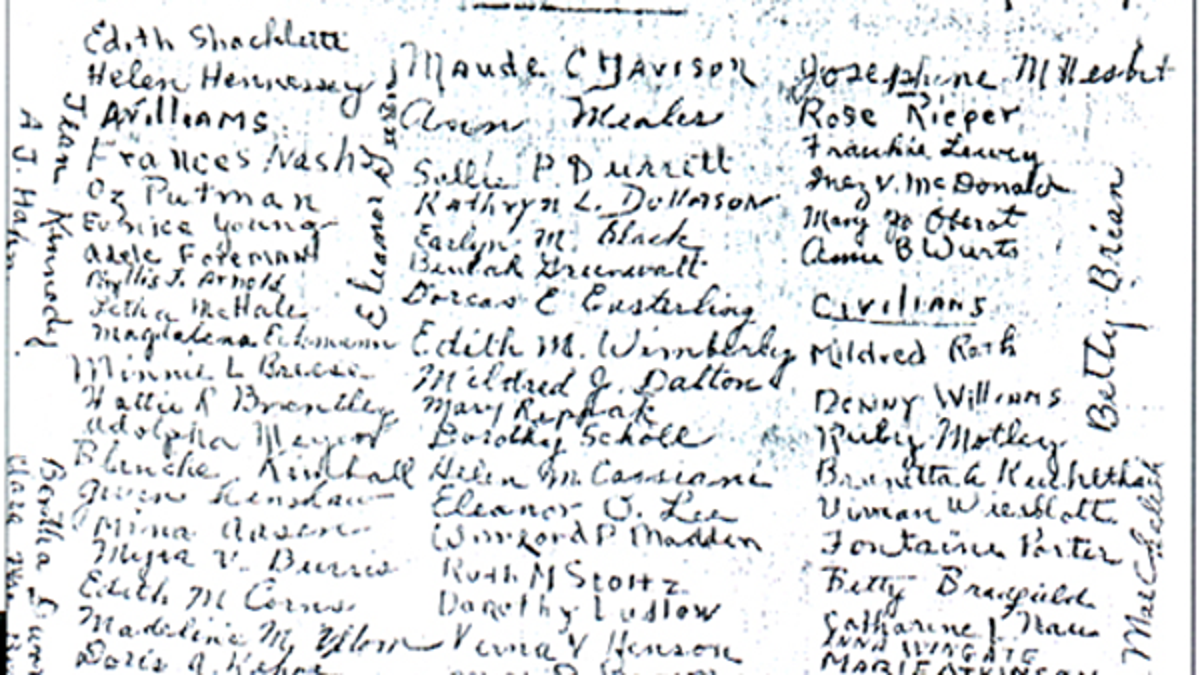 Edith Shacklette
Helen Hennessey
A Williams
Frances Nash
Oz Putman
Eunice Young
Adele Foreman
Phyllis J. Arnold
Letha McHale
Magdalena Eckmann
Minnie L Breese
Hattie R Brantley
Adolpha Meyer
Blanche Kimball
Gwen Henshaw
Mina Aasen
Myra V. Burris
Edith M Corns
Madeline M. Ullom
Doris A. Kehoe
Jean Kennedy
A J. Hahn
Eleanor
Maude C Davison
Ann Mealer
Sallie P. Durrett
Kathryn L. Dollason
Earlyn M. Black
Beulah Greenwalt
Dorcas E Easterling
Edith M. Wimberly
Mildred J. Dalton
Mary Reppak
Dorothy Scholl
Helen M Cassiani
Eleanor O. Lee
Winifred P Madden
Ruth M Stoltz
Dorothy Ludlow
Verna V Henson
Josephine M Nesbit
Rose Rieper
Frankie Lewey
Inez V. McDonald
Mary Jo Oberst
Anne B Wurts
Civilians
Mildred Roth
Denny Williams
Ruby Motley
Brunetta A
Vivian Weisblatt
Fontaine Porter
Betty Bradfield
Catharine L Nau
Anna Wingate
Marie Atkinson
Betty Brian